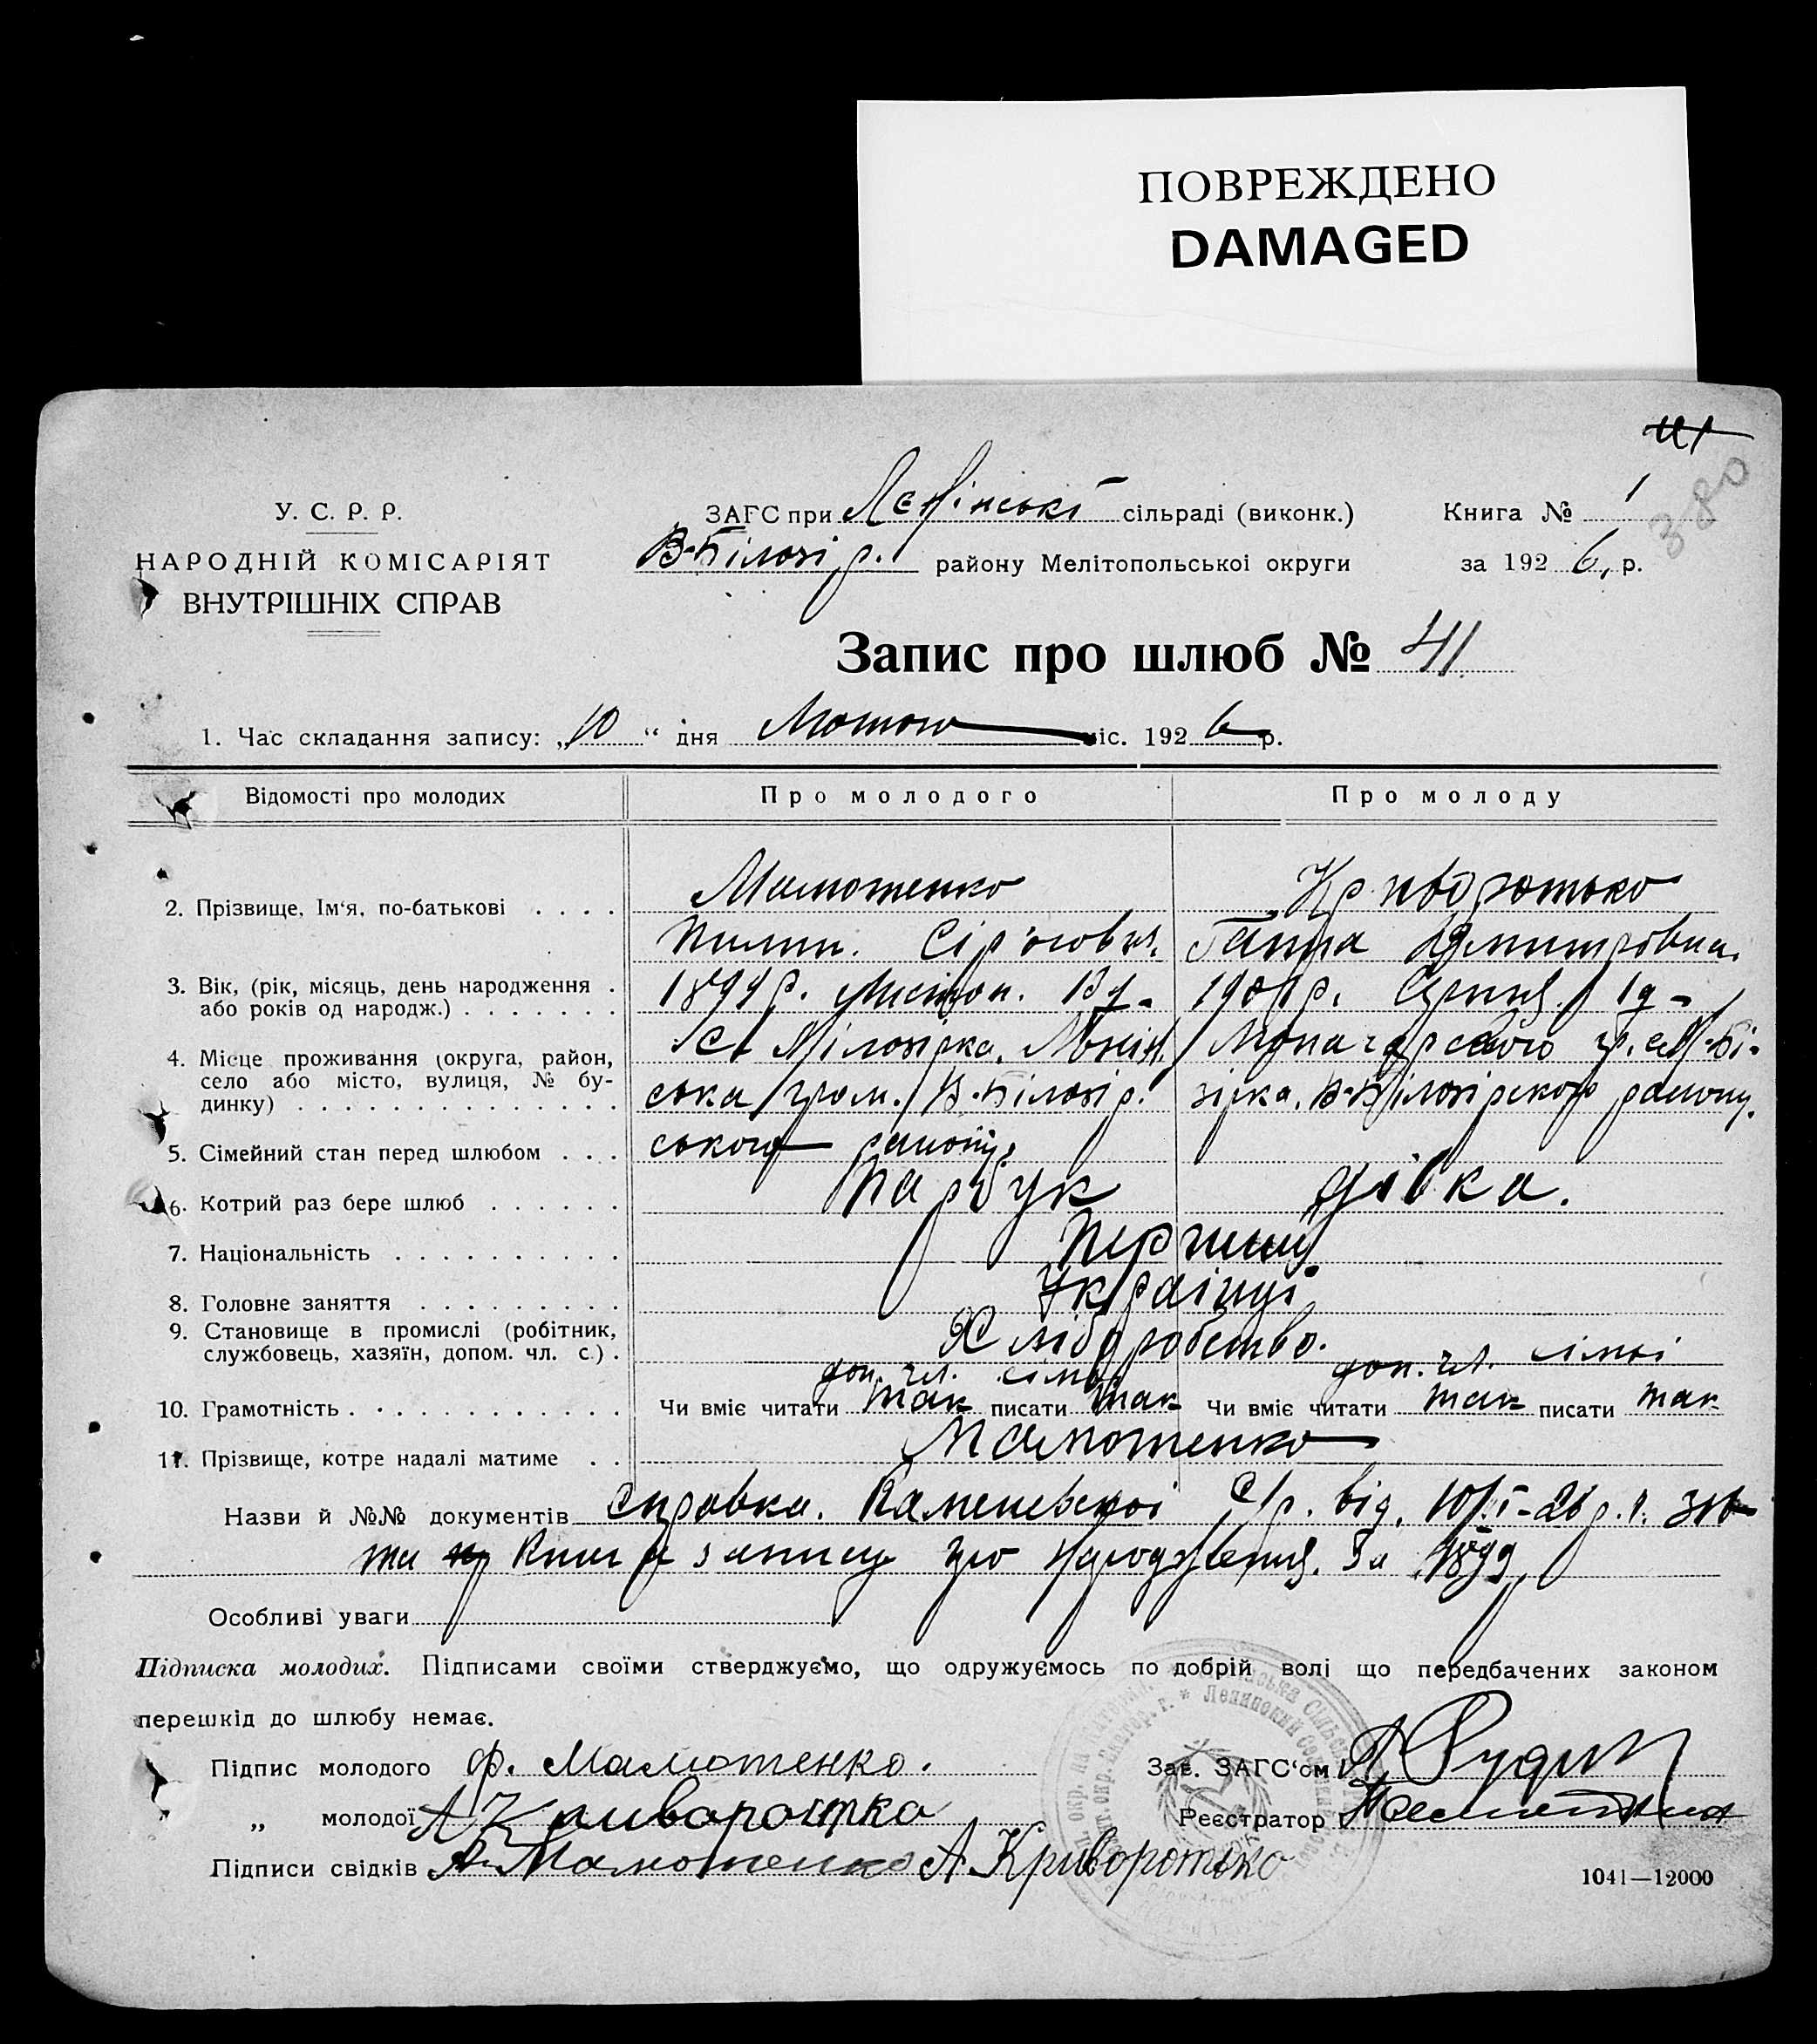 ПОВРЕЖДЕНО
DAMAGED
41
380
У. С. Р. Р.
НАРОДНІЙ КОМІСАРІЯТ
ВНУТРІШНІХ СПРАВ
ЗАГС при Ленінські сільраді (виконк.)
В-Білозір. району Мелітопольської округи
Книга № 1
за 1926 р.
Запис про шлюб № 41
1. Час складання запису: „10“ дня Лютого міс. 1926 р.
Відомості про молодих Про молодого Про молоду
2. Прізвище, Ім'я, по-батькові . . . . Мамотенко Криворотько
Пилип. Ганна Дмитровна.
3. Вік, (рік, місяць, день народження . 1899 р. Листоп. 1901 р. Серпня 1 д-
або років од народж.) . . . . . . .
4. Місце проживання (округа, район,
село або місто, вулиця, № бу-
динку) . . . . . . . . . . . . . .
ська гром. В-Білозір. зірка. В-Білозірского району.
ського району.
5. Сімейний стан перед шлюбом . . . Парубук дівка.
6. Котрий раз бере шлюб . . . . . . Перший
7. Національність . . . . . . . . . . Українці
8. Головне заняття . . . . . . . . . Хліборобство.
9. Становище в промислі (робітник,
службовець, хазяїн, допом. чл. с.) . доп. чл. сімьі доп. чл. сімьі
10. Грамотність . . . . . . . . . . . . Чи вміє читати так писати так Чи вміє читати так писати так
11. Прізвище, котре надалі матиме . . Мамотенко
Назви й №№ документів Справка. Каменської С/р. від. 10/І-26 р.
книги запису про народження. За 1899
Особливі уваги
Підписка молодих. Підписами своїми стверджуємо, що одружуємось по добрій волі що передбачених законом
перешкід до шлюбу немає.
Підпис молодого Ф. Мамотенко.
„ молодої А Криворотко
Підписи свідків А. Мамотенко А. Криворотько
Зав. ЗАГС'ом
Реєстратор
1041—12000